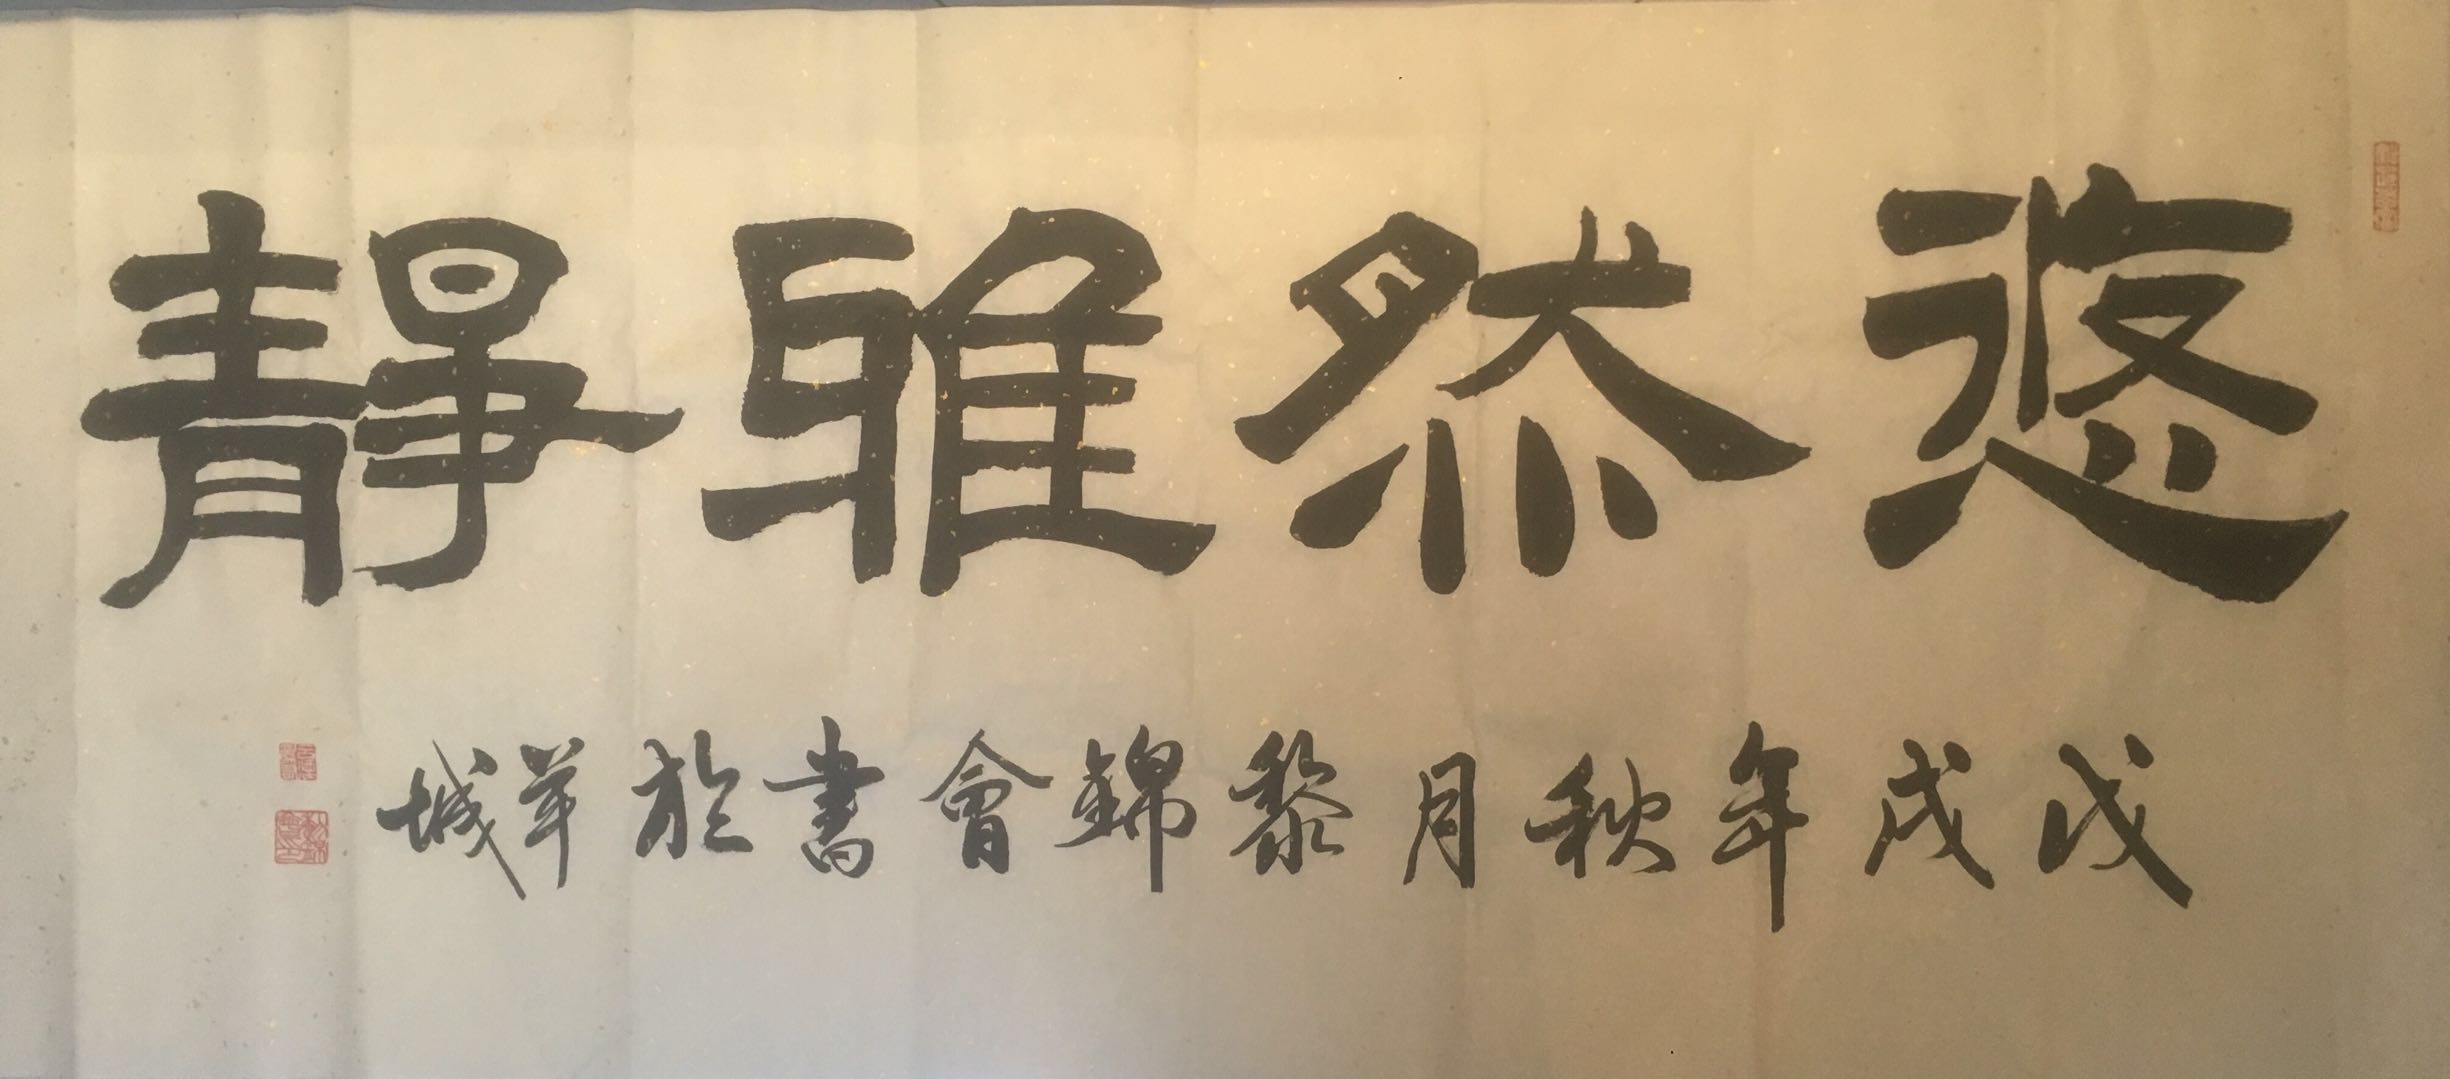 悠然雅靜
戊戌年秋月黎錦會書於羊城